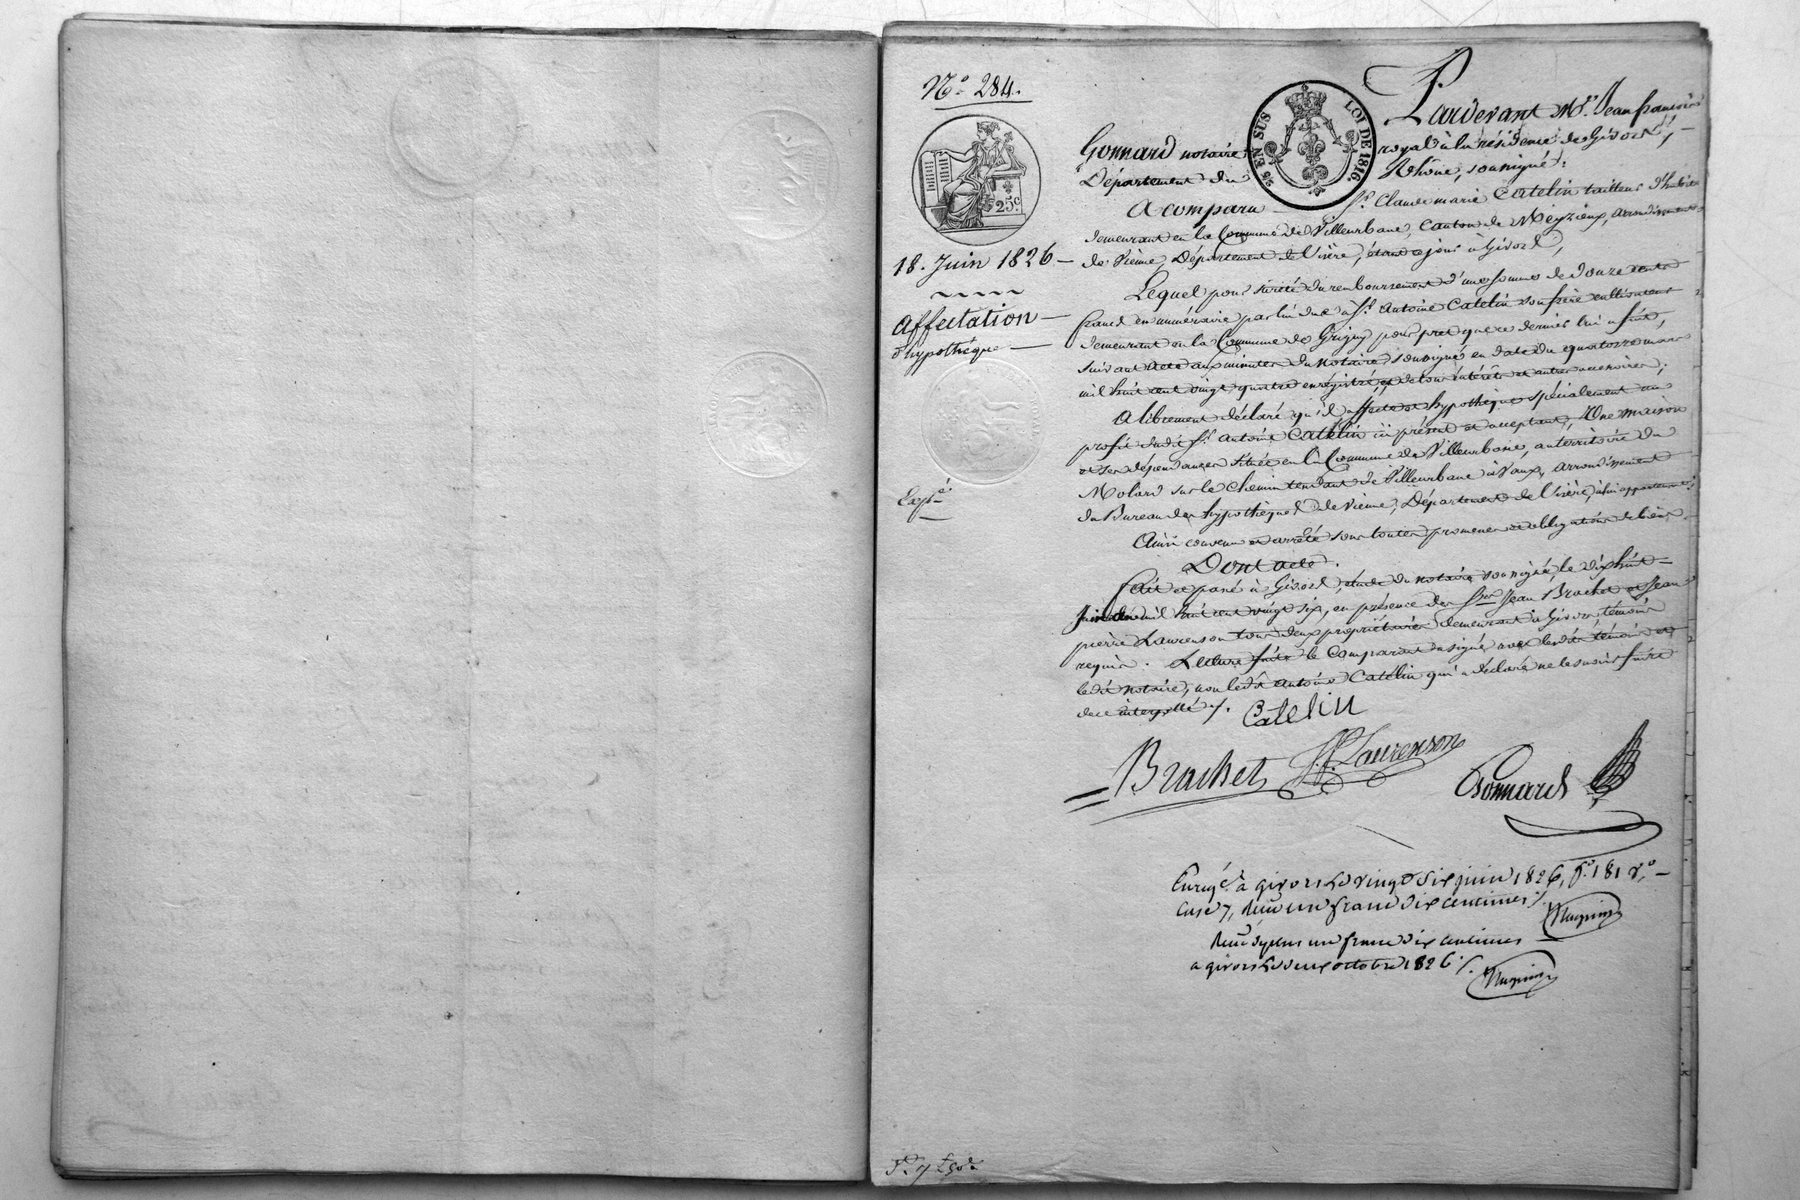 N.° 284.
25.c
2/5 EN SUS LOI DE 1816.
18. Juin 1826
Affectation
d'hypothèque
Exp.é
Pardevant M.e Jean françois
Gonnard notaire royal à la résidence de Givors,
Département du Rhône, soussigné;
A comparu S.r Claude marie Catelin tailleur d'habits
demeurant en la Commune de Villeurbane, Canton de Meyzieux, arrondissement
de Vienne, Département de l'isère, étant ce jour à Givors,
Lequel pour sureté du remboursement d'une somme de douze cents
francs en numéraire par lui due à S.r Antoine Catelin son frère cultivateur
demeurant en la Commune de Grigny pour pret que ce dernier lui a fait,
suivant acte aux minutes du notaire soussigné en date du quatorze mars
mil huit cent vingt quatre enregistré, et de tous intérêts et autres accessoires;
A librement déclaré qu'il affecte et hypothèque spécialement au
profit dudit S.r Antoine Catelin ici présent et acceptant, Une maison
et ses dépendances située en la Commune de Villeurbane, au territoire du
Molard sur le chemin tendant de Villeurbane à Vaux, arrondissement
du Bureau des hypothèques de Vienne, Département de l'isère, à lui appartenant;
Ainsi convenu et arrêté sous toutes promesses et obligations de biens.
Dont acte.
Fait et passé à Givors, étude du notaire soussigné, le dix huit
Juin mil huit cent vingt six, en présence des Srs Jean Brachet et Jean
pierre Laurenson tous deux propriétaires demeurant à Givors, témoins
requis. Lecture faite le Comparant a signé avec lesdits témoins et
ledit notaire, non ledit Antoine Catelin qui a déclaré ne le savoir faire
de ce interpellé ./.
Catelin
Brachet J.P. Laurenson
Gonnard
Enreg.é à givors le vingt six juin 1826, f.o 181 v.o
Case 7, reçu un franc dix centimes ./.
reçu de plus un franc dix centimes
a givors le deux octobre 1826 ./.